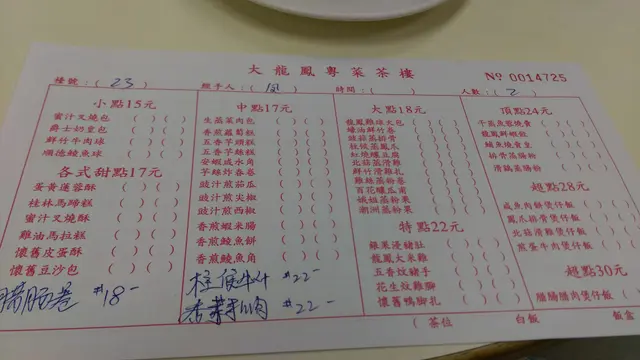 大龍鳳粵菜茶樓
№ 0014725
檯號:( 23 )
經手人:(
時間:( )
人數:( 2 )
小點15元
蜜汁叉燒包 ( ) ( )
爵士奶皇包 ( ) ( )
鮮竹牛肉球 ( ) ( )
順德鯪魚球 ( ) ( )
各式甜點17元
蛋黃蓮蓉酥 ( ) ( )
桂林馬蹄糕 ( ) ( )
蜜汁叉燒酥 ( ) ( )
雞油馬拉糕 ( ) ( )
懷舊皮蛋酥 ( ) ( )
懷舊豆沙包 ( ) ( )
腸 #18-
中點17元
生菜肉包 ( ) ( )
香煎蘿蔔糕 ( ) ( )
五香芋頭糕 ( ) ( )
五香芋絲糕 ( ) ( )
安蝦咸水角 ( ) ( )
芋絲炸春卷 ( ) ( )
豉汁煎茄瓜 ( ) ( )
豉汁煎尖椒 ( ) ( )
豉汁煎西椒 ( ) ( )
香煎蝦米腸 ( ) ( )
香煎鯪魚餅 ( ) ( )
香煎鯪魚角 ( ) ( )
柱候牛什 #22-
#22-
大點18元
龍鳳雞球大包 ( ) ( )
蠔油鮮竹卷 ( ) ( )
豉蒜蒸排骨 ( ) ( )
鳳爪 ( ) ( )
紅燒釀豆腐 ( ) ( )
北菇滑雞 ( ) ( )
鮮竹滑雞扎 ( ) ( )
雞絲蒸粉卷 ( ) ( )
百花釀瓜甫 ( ) ( )
娥姐蒸粉果 ( ) ( )
潮洲蒸粉果 ( ) ( )
特點22元
銀果浸豬肚 ( ) ( )
龍鳳大米雞 ( ) ( )
五香炆豬手 ( ) ( )
花生炆雞腳 ( ) ( )
懷舊鴨腳扎 ( ) ( )
頂點24元
干蒸燒賣 ( ) ( )
龍鳳鮮蝦餃 ( ) ( )
鯪魚燒賣 ( ) ( )
排骨蒸腸粉 ( ) ( )
滑雞蒸腸粉 ( ) ( )
超點28元
咸魚肉餅煲仔飯 ( ) ( )
鳳爪排骨煲仔飯 ( ) ( )
北菇滑雞煲仔飯 ( ) ( )
煎蛋牛肉煲仔飯 ( ) ( )
超點30元
臘腸臘肉煲仔飯 ( )
( 茶位 白飯 飯盒